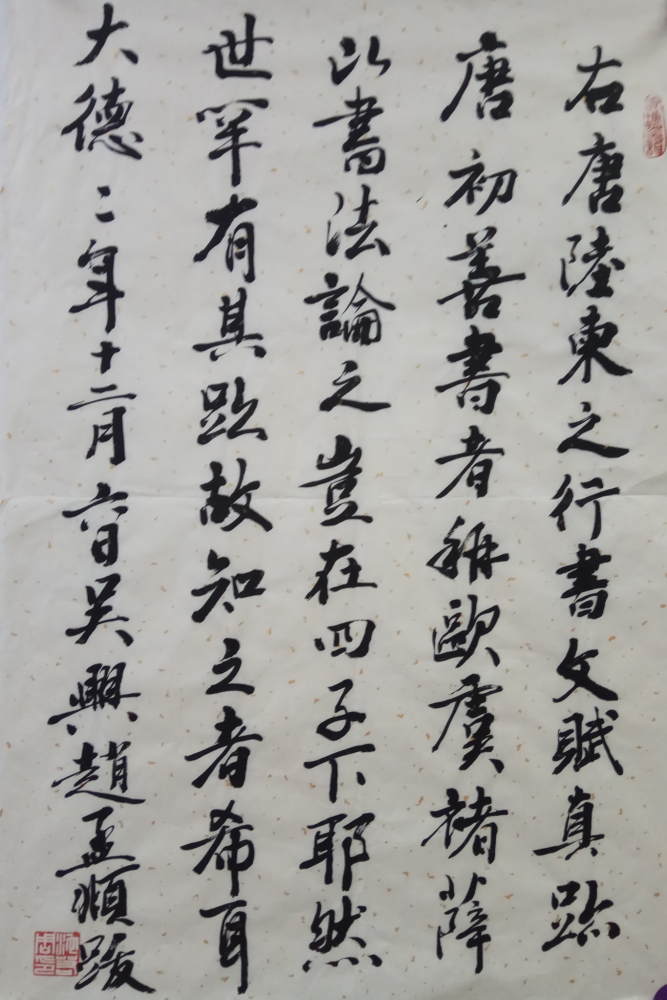 右唐陸柬之行書文賦真跡
唐初善書者稱歐虞褚薛
以書法論之豈在四子下耶然
世罕有其跡故知之者希耳
大德二年十二月六日吳興趙孟頫跋